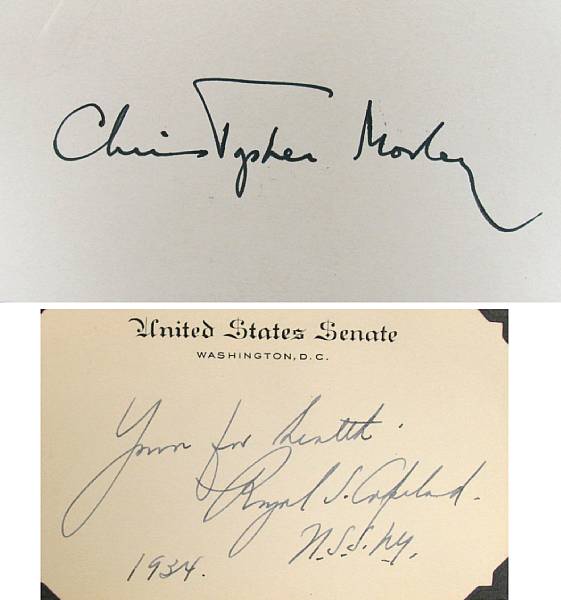 Christopher Morley
United States Senate
WASHINGTON, D.C.
Yours for health.
Royal S. Copeland.
U.S.S. N.Y.
1934.